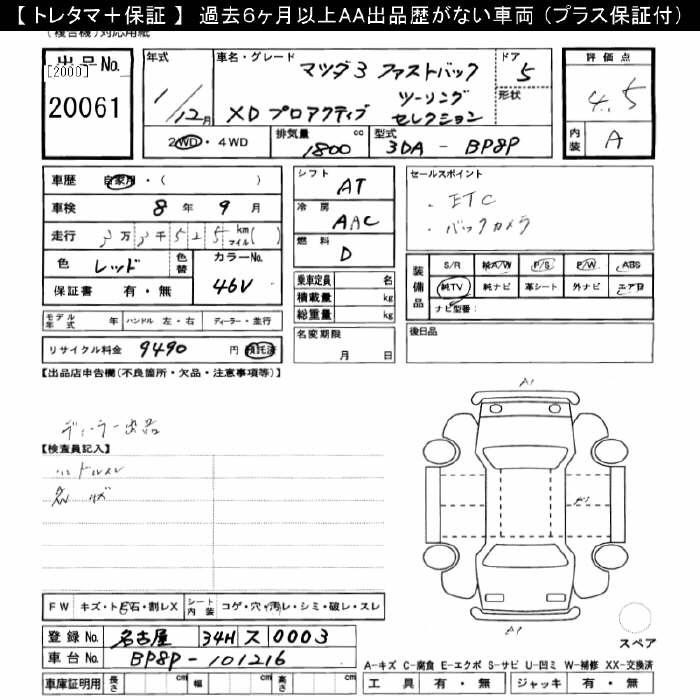 【 トレタマ＋保証 】 過去6ヶ月以上AA出品歴がない車両（プラス保証付）
出品No.
[2000]
20061
年式
1/12月
車名・グレード
マツダ3 ファストバック
XD プロアクティブ ツーリング セレクション
ドア
5
形状
評価点
4.5
内装
A
2WD・4WD
排気量 1800 cc
型式 3DA - BP8P
車歴 自家用・( )
車検 8 年 9 月
走行 3万3千525 km マイル( )
色 レッド 色替 カラーNo. 46V
保証書 有・無
モデル年式 年 ハンドル 左・右 ディーラー・並行
リサイクル料金 9490 円 預託済
シフト AT
冷房 AAC
燃料 D
乗車定員 名
積載量 kg
総重量 kg
名変期限
月 日
セールスポイント
・ETC
・バックカメラ
装備品
S/R 純A/W P/S P/W ABS
純TV 純ナビ 革シート 外ナビ エアB
ナビ型番：
後日品
【出品店申告欄(不良箇所・欠品・注意事項等)】
ディーラー出品
【検査員記入】
A1
A1
A1
スペア
FW キズ・トビ石・割レX シート内装 コゲ・穴・汚レ・シミ・破レ・スレ
登録No. 名古屋 34H ス 0003
車台No. BP8P-101216
車庫証明用 長さ cm 幅 cm 高さ cm
A-キズ C-腐食 E-エクボ S-サビ U-凹ミ W-補修 XX-交換済
工具 有・無 ジャッキ 有・無